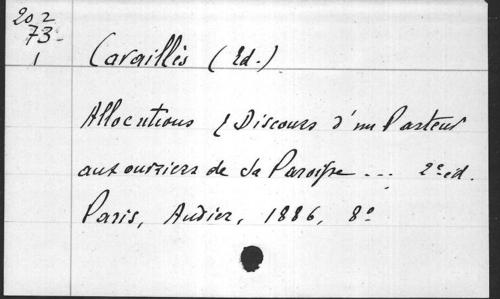 202
73-
1
Cavaillès (Ed.)
Allocutions & Discours d'un Pasteur
aux ouvriers de sa Paroisse ... 2e ed.
Paris, Audier, 1886, 8°